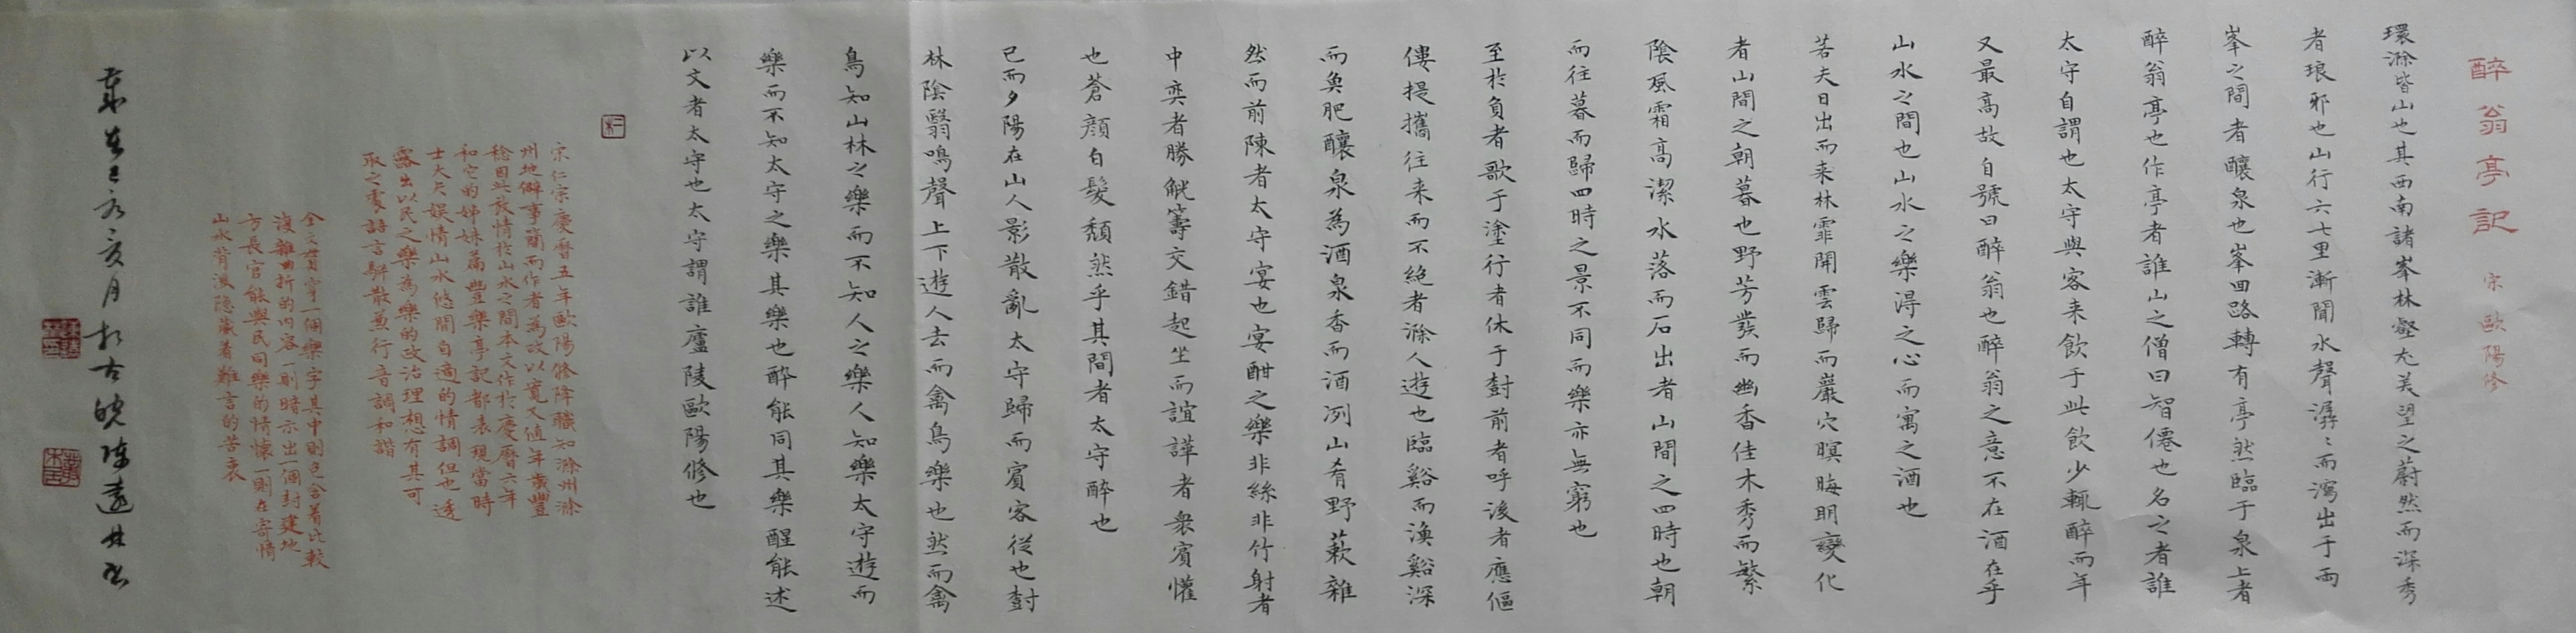 醉翁亭記 宗 歐陽修
環滁皆山也其西南諸峯林壑尤美望之蔚然而深秀
者琅邪也山行六七里漸聞水聲潺〻而瀉出于兩
峯之間者釀泉也峯回路轉有亭然臨于泉上者
醉翁亭也作亭者誰山之僧曰智僊也名之者誰
太守自謂也太守與客来飲于此飲少輒醉而年
又最高故自號曰醉翁也醉翁之意不在酒在乎
山水之間也山水之樂淂之心而寓之酒也
若夫日出而来林霏開雲歸而巖穴暝晦明變化
者山間之朝暮也野芳發而幽香佳木秀而繁
陰風霜高潔水落而石出者山間之四時也朝
而往暮而歸四時之景不同而樂亦無窮也
至於負者歌于塗行者休于樹前者呼後者應傴
僂提攜往来而不絕者滁人遊也臨谿而漁谿深
而魚肥釀泉為酒泉香而酒洌山肴野蔌雜
然而前陳者太守宴也宴酣之樂非絲非竹射者
中奕者勝觥籌交錯起坐而諠譁者衆賓懽
也蒼顔白髮頹然乎其間者太守醉也
已而夕陽在山人影散亂太守歸而賓客從也樹
林陰翳鳴聲上下遊人去而禽鳥樂也然而禽
鳥知山林之樂而不知人之樂人知樂太守遊而
樂而不知太守之樂其樂也醉能同其樂醒能述
以文者太守也太守謂誰廬陵歐陽修也
宗仁宗慶曆五年歐陽修降職知滁州滁
州地僻事簡而作者為政以寬又值年歲豐
稔因此放情於山水之間本文作於慶曆六年
和它的姊妹篇豐樂亭記都表現當時
士大夫娛情山水悠閒自適的情調但也透
露出以民之樂為樂的政治理想有其可
取之處語言駢散兼行音調和諧
全文貫穿一個樂字其中則包含着比較
復雜曲折的内容一則暗示出一個封建地
方長官能與民同樂的情懷一則在寄情
山水背後隐藏着難言的苦衷
亥月於古皖陳遠